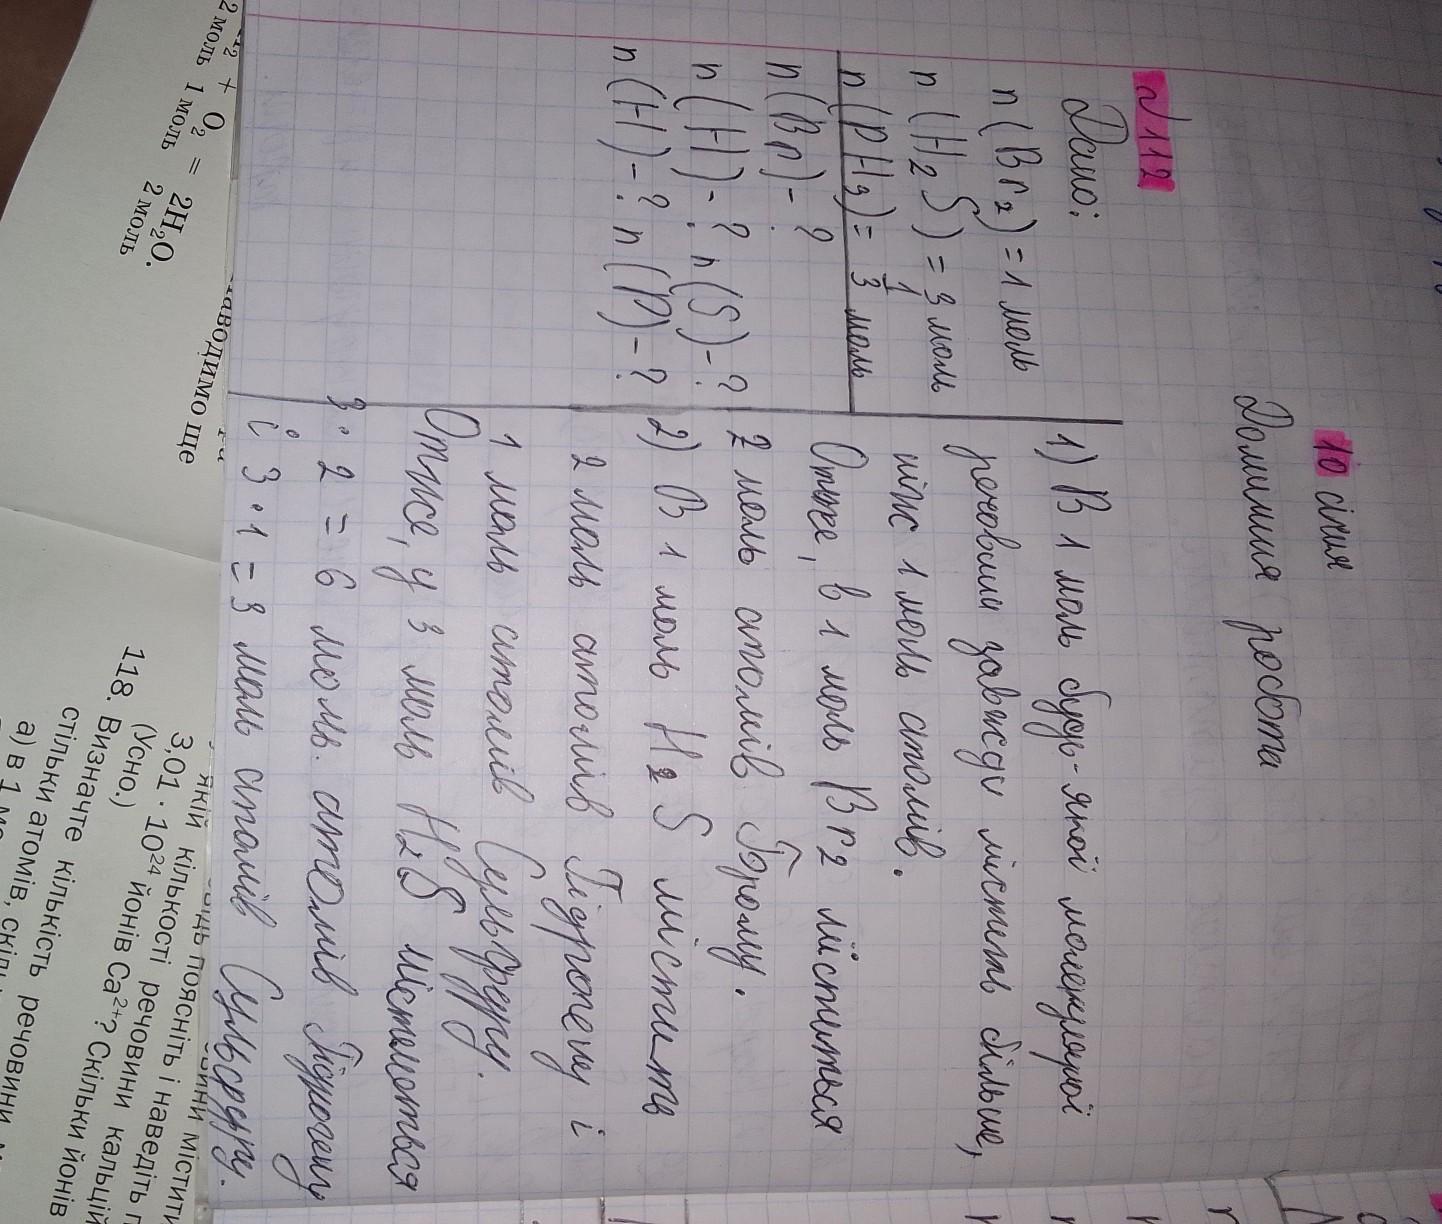 10 січня
Домашня робота
№112
Дано:
n (Br2) = 1 моль
n (H2S) = 3 моль
n (PH3) = 1/3 моль
n (Br) - ?
n (H) - ? n (S) - ?
n (H) - ? n (P) - ?
1) В 1 моль будь-якої молекулярної
речовини завжди містить більше,
ніж 1 моль атомів.
Отже, в 1 моль Br2 міститься
2 моль атомів Брому.
2) В 1 моль H2S містить
2 моль атомів Гідрогену і
1 моль атомів Сульфуру.
Отже, у 3 моль H2S містяться
3 · 2 = 6 моль атомів Гідрогену
і 3 · 1 = 3 моль атомів Сульфуру.
H2 + O2 = 2H2O.
2 моль 1 моль 2 моль
наводимо ще
відь поясніть і наведіть
якій кількості речовини
3,01 · 1024 йонів Ca2+? Скільки йонів
(Усно.)
118. Визначте кількість речовини кальцій
стільки атомів, скіль
а) в 1 мо